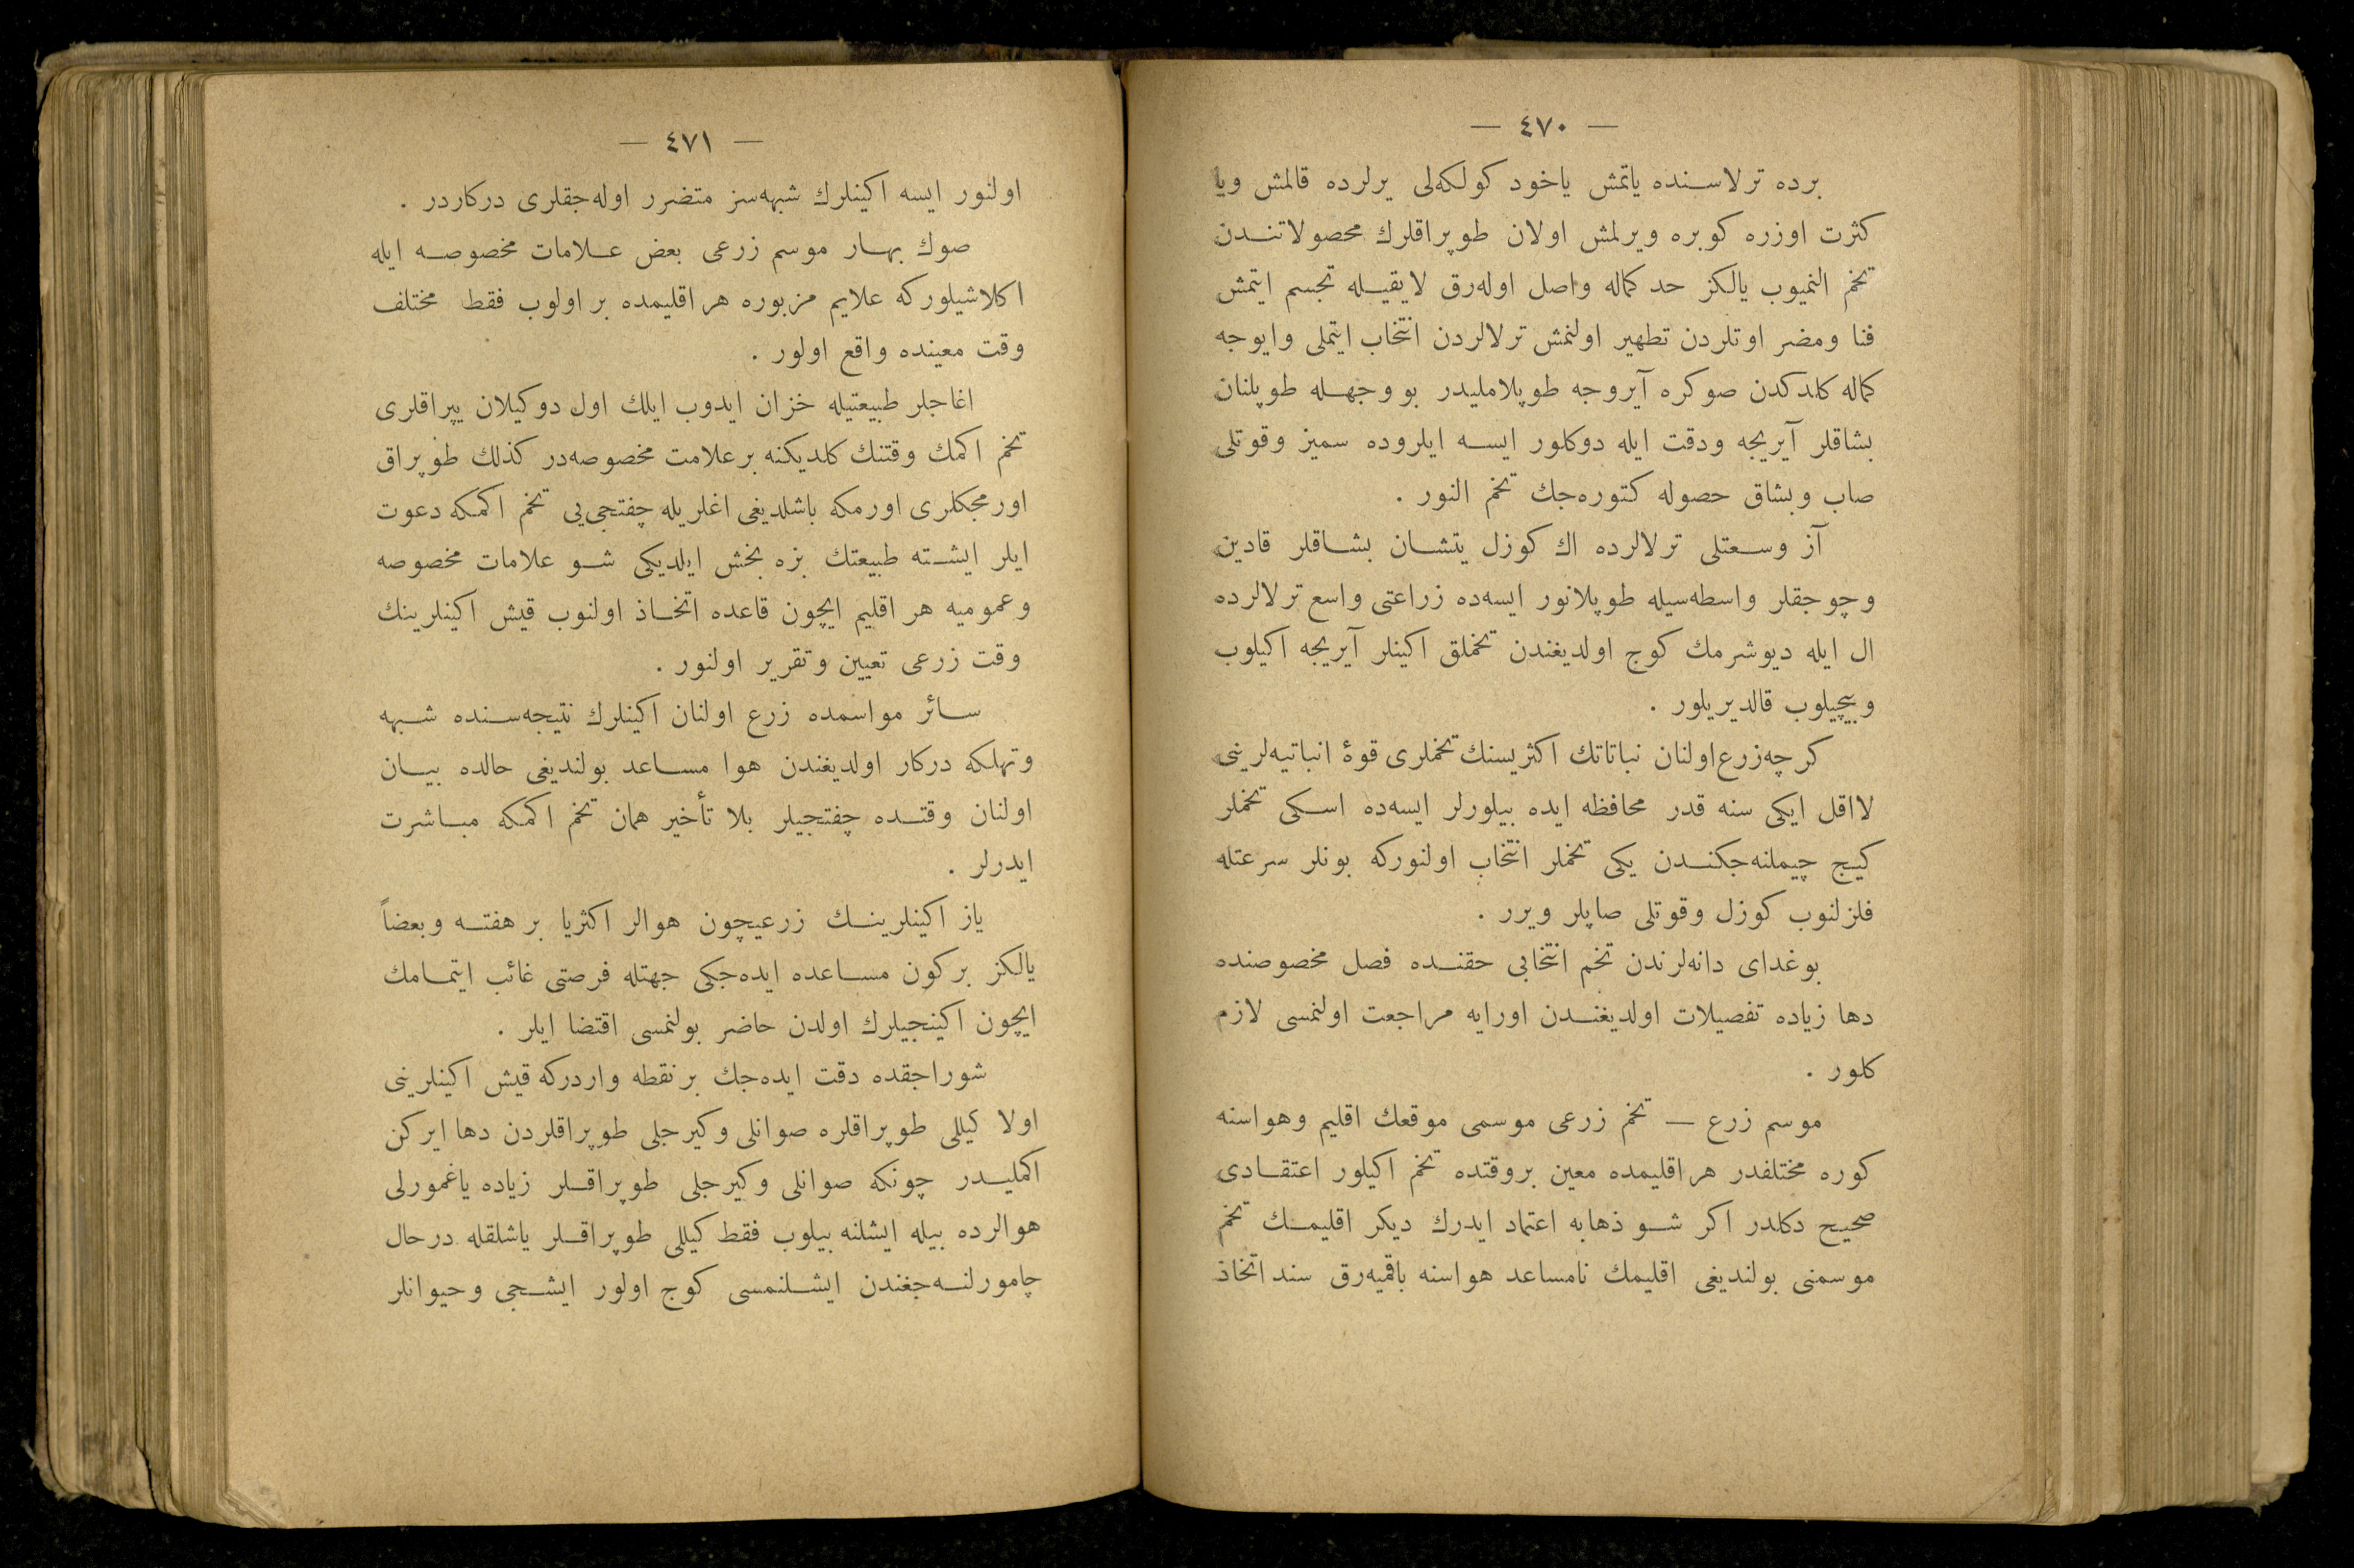 — ٤٧٠ —
برده ترلاسنده ياتمش ياخود كولكه‌لى يرلرده قالمش ويا
كثرت اوزره كوبره ويرلمش اولان طوپراقلرك محصولاتندن
تخم النميوب يالكز حد كماله واصل اوله‌رق لايقيله تجسم ايتمش
فنا ومضر اوتلردن تطهير اولنمش ترلالردن انتخاب ايتملى وايوجه
كماله كلدكدن صوكره آيروجه طوپلامليدر بو وجهله طوپلنان
بشاقلر آيريجه ودقت ايله دوكلور ايسه ايلروده سميز وقوتلى
صاب وبشاق حصوله كتوره‌جك تخم النور .
آز وسعتلى ترلالرده اك كوزل يتشان بشاقلر قادين
وچوجقلر واسطه‌سيله طوپلانور ايسه‌ده زراعتى واسع ترلالرده
ال ايله ديوشرمك كوج اولديغندن تخملق اكينلر آيريجه اكيلوب
وبيچيلوب قالديريلور .
كرچه زرع اولنان نباتاتك اكثريسنك تخملرى قوۀ انباتيه‌لرينى
لااقل ايكى سنه قدر محافظه ايده بيلورلر ايسه‌ده اسكى تخملر
كيج چيملنه‌جكندن يكى تخملر انتخاب اولنوركه بونلر سرعتله
فلزلنوب كوزل وقوتلى صاپلر ويرر .
بوغداى دانه‌لرندن تخم انتخابى حقنده فصل مخصوصنده
دها زياده تفصيلات اولديغندن اورايه مراجعت اولنمسى لازم
كلور .
موسم زرع — تخم زرعى موسمى موقعك اقليم وهواسنه
كوره مختلفدر هر اقليمده معين بروقتده تخم اكيلور اعتقادى
صحيح دكلدر اكر شو ذهابه اعتماد ايدرك ديكر اقليمك تخم
موسمنى بولنديغى اقليمك نامساعد هواسنه باقميه‌رق سند اتخاذ
— ٤٧١ —
اولنور ايسه اكينلرك شبهه‌سز متضرر اوله‌جقلرى دركاردر .
صوك بهار موسم زرعى بعض علامات مخصوصه ايله
اكلاشيلوركه علايم مزبوره هر اقليمده بر اولوب فقط مختلف
وقت معينده واقع اولور .
اغاجلر طبيعتيله خزان ايدوب ايلك اول دوكيلان يپراقلرى
تخم اكمك وقتنك كلديكنه برعلامت مخصوصه‌در كذلك طوپراق
اورمجكلرى اورمكه باشلديغى اغلريله چفتجى‌يى تخم اكمكه دعوت
ايلر ايشته طبيعتك بزه بخش ايلديكى شو علامات مخصوصه
وعموميه هر اقليم ايچون قاعده اتخاذ اولنوب قيش اكينلرينك
وقت زرعى تعيين وتقرير اولنور .
سائر مواسمده زرع اولنان اكينلرك نتيجه‌سنده شبهه
وتهلكه دركار اولديغندن هوا مساعد بولنديغى حالده بيان
اولنان وقتده چفتجيلر بلا تأخير همان تخم اكمكه مباشرت
ايدرلر .
ياز اكينلرينك زرعيچون هوالر اكثريا بر هفته وبعضاً
يالكز بركون مساعده ايده‌جكى جهتله فرصتى غائب ايتمامك
ايچون اكينجيلرك اولدن حاضر بولنمسى اقتضا ايلر .
شوراجقده دقت ايده‌جك برنقطه واردركه قيش اكينلرينى
اولا كيللى طوپراقلره صوانلى وكيرجلى طوپراقلردن دها ايركن
اكمليدر چونكه صوانلى وكيرجلى طوپراقلر زياده ياغمورلى
هوالرده بيله ايشلنه بيلوب فقط كيللى طوپراقلر ياشلقله درحال
چامورلنه‌جغندن ايشلنمسى كوج اولور ايشجى وحيوانلر